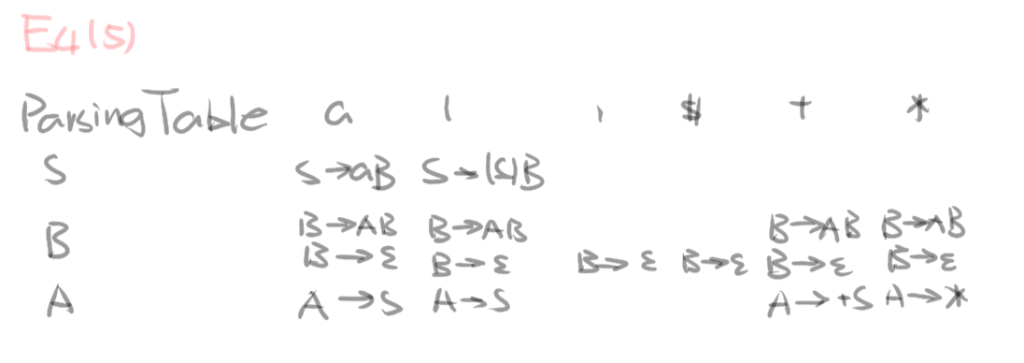 E4(5)
Parsing Table a ( ) $ + *
S S→aB S→(S)B
B B→AB B→AB B→AB B→AB
B→ε B→ε B→ε B→ε B→ε B→ε
A A→S A→S A→+S A→*